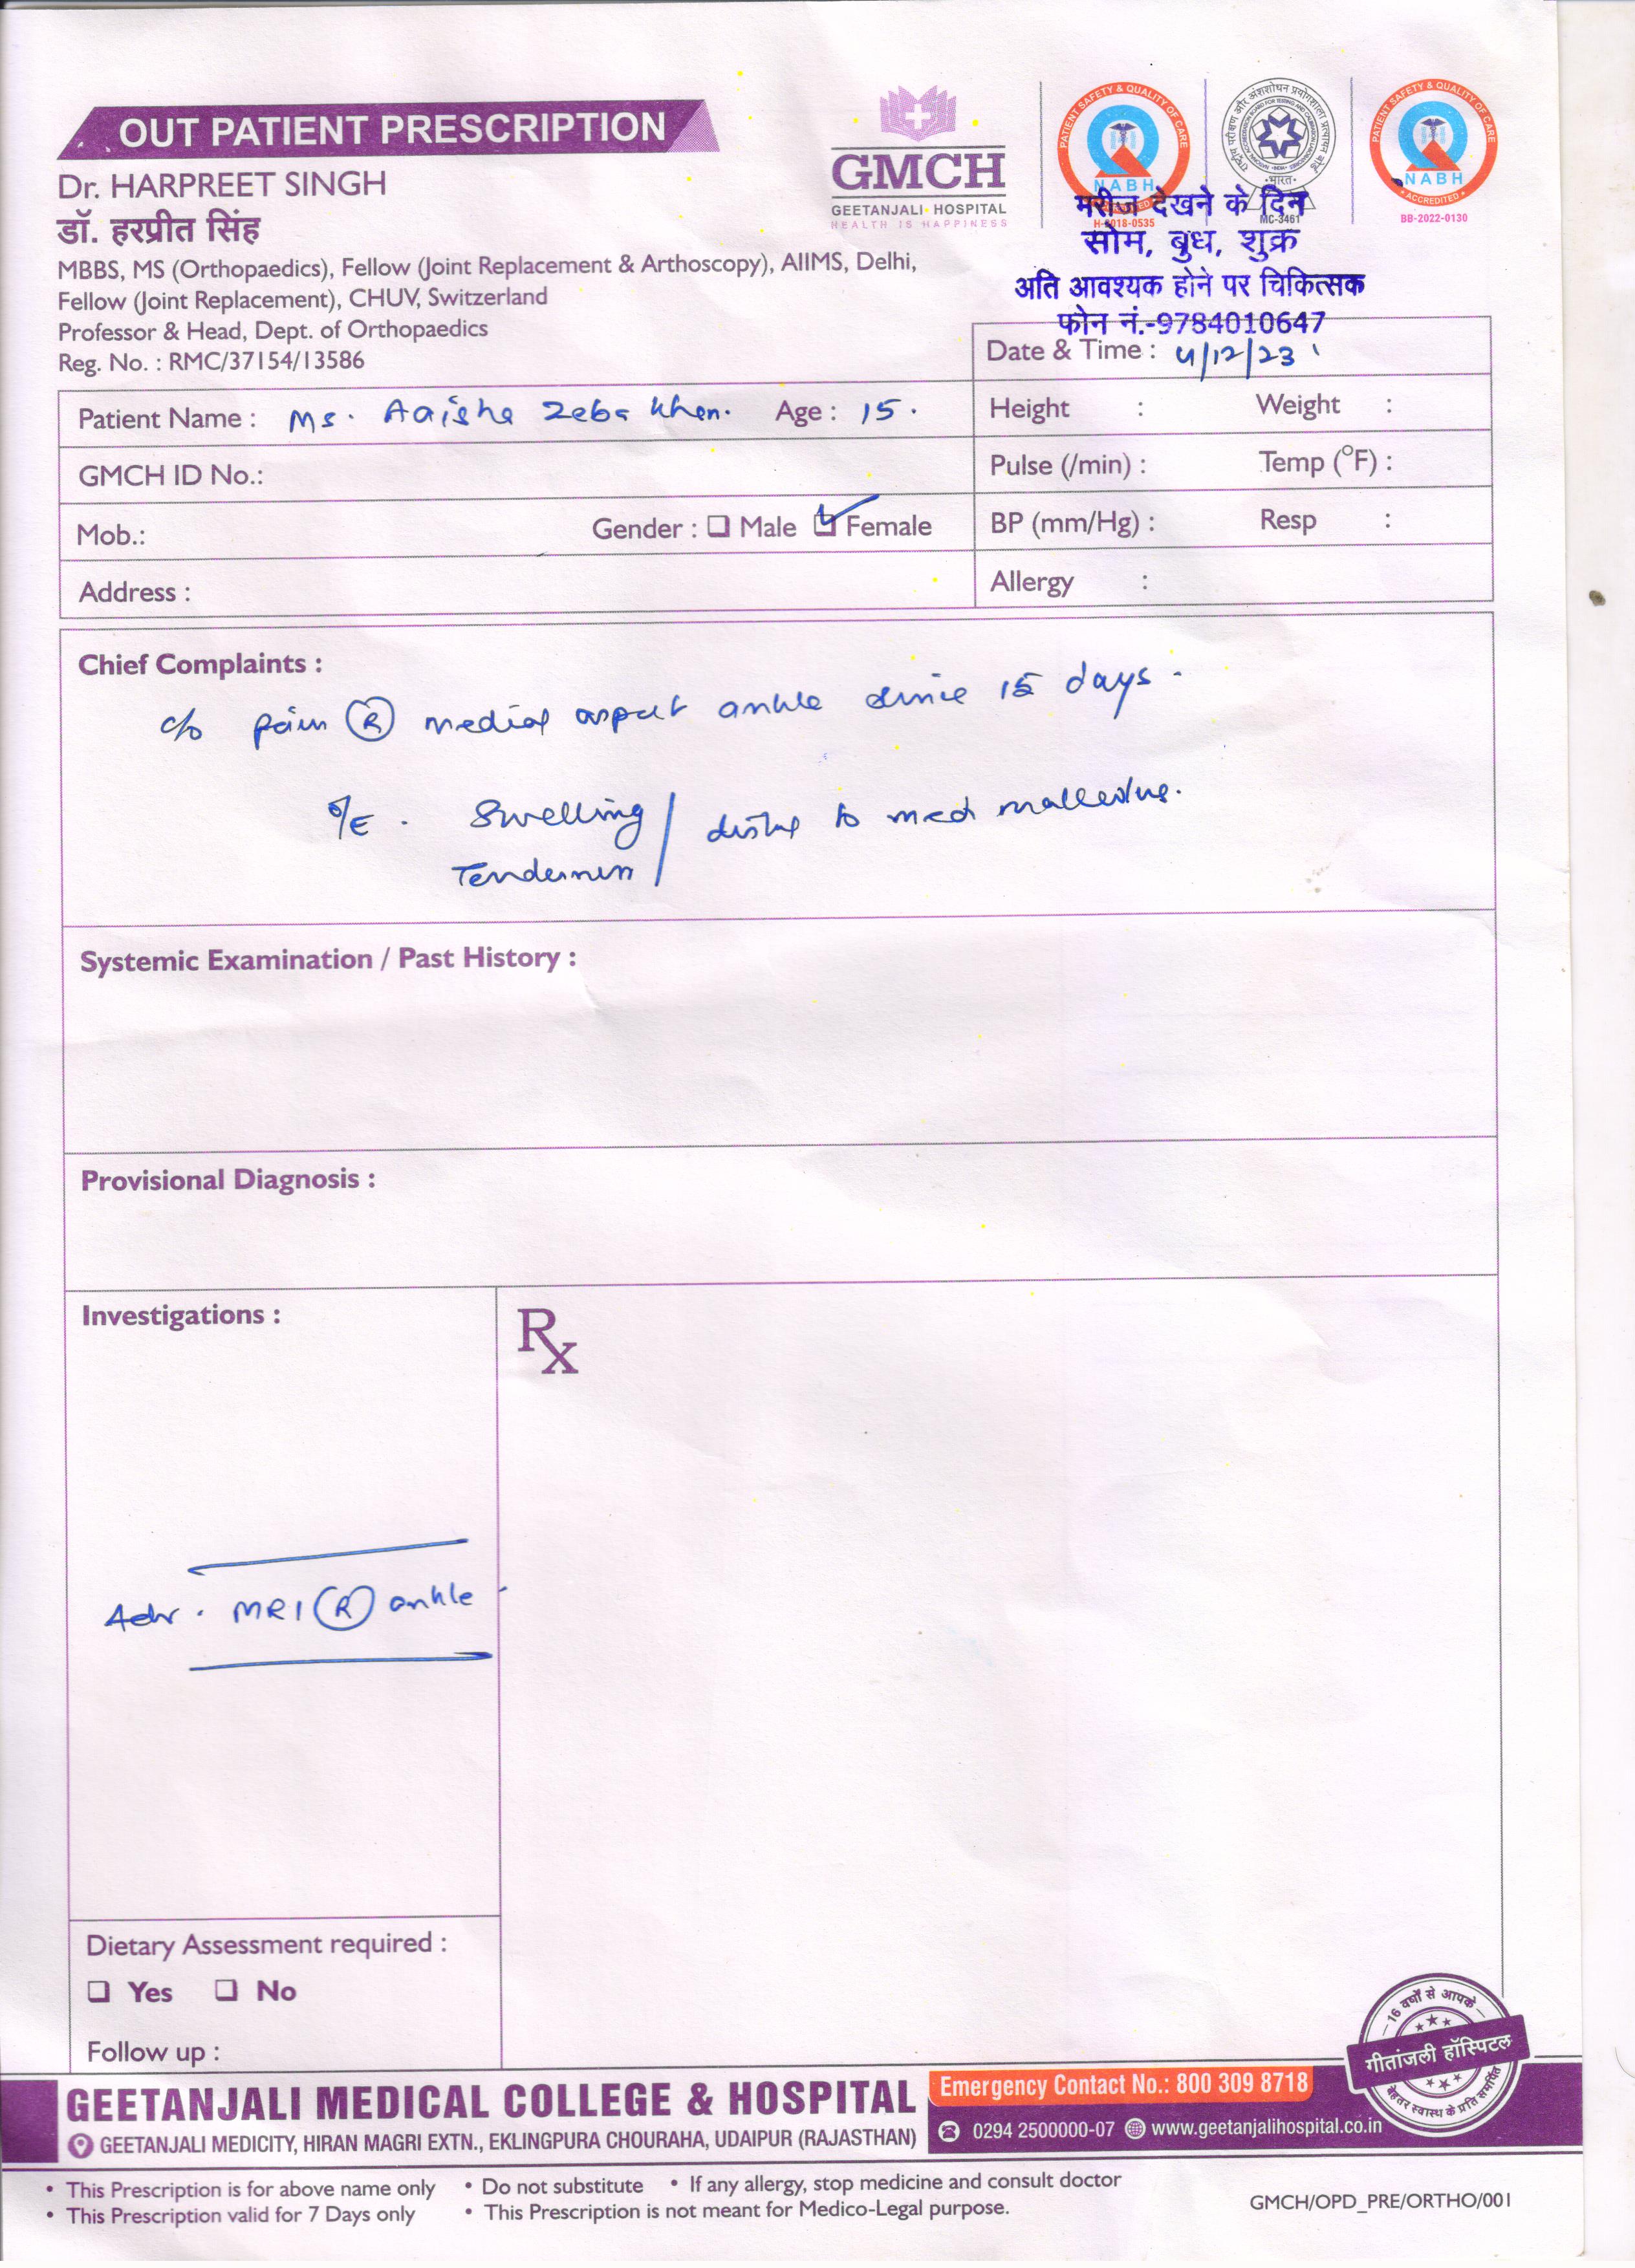 OUT PATIENT PRESCRIPTION
Dr. HARPREET SINGH
डॉ. हरप्रीत सिंह
MBBS, MS (Orthopaedics), Fellow (Joint Replacement & Arthoscopy), AIIMS, Delhi,
Fellow (Joint Replacement), CHUV, Switzerland
Professor & Head, Dept. of Orthopaedics
Reg. No. : RMC/37154/13586
GMCH
GEETANJALI HOSPITAL
HEALTH IS HAPPINESS
PATIENT SAFETY & QUALITY OF CARE
NABH
H-2018-0535
भारत
MC-3461
PATIENT SAFETY & QUALITY OF CARE
NABH
ACCREDITED
BB-2022-0130
मरीज देखने के दिन
सोम, बुध, शुक्र
अति आवश्यक होने पर चिकित्सक
फोन नं.-9784010647
Date & Time : 4/12/23
Patient Name : Ms. Aaisha Zeba Khan. Age : 15.
Height : Weight :
GMCH ID No.:
Pulse (/min) : Temp (°F) :
Mob.: Gender : Male Female
BP (mm/Hg) : Resp :
Address :
Allergy :
Chief Complaints :
c/o pain R medial aspect ankle since 15 days.
O/E. Swelling / distal to med malleolus.
Tenderness
Systemic Examination / Past History :
Provisional Diagnosis :
Investigations :
Rx
Adv. MRI R ankle
Dietary Assessment required :
Yes No
Follow up :
16 वर्षों से आपके
गीतांजली हॉस्पिटल
बेहतर स्वास्थ के प्रति समर्पित
GEETANJALI MEDICAL COLLEGE & HOSPITAL
GEETANJALI MEDICITY, HIRAN MAGRI EXTN., EKLINGPURA CHOURAHA, UDAIPUR (RAJASTHAN)
Emergency Contact No.: 800 309 8718
0294 2500000-07 www.geetanjalihospital.co.in
• This Prescription is for above name only • Do not substitute • If any allergy, stop medicine and consult doctor
• This Prescription valid for 7 Days only • This Prescription is not meant for Medico-Legal purpose.
GMCH/OPD_PRE/ORTHO/001